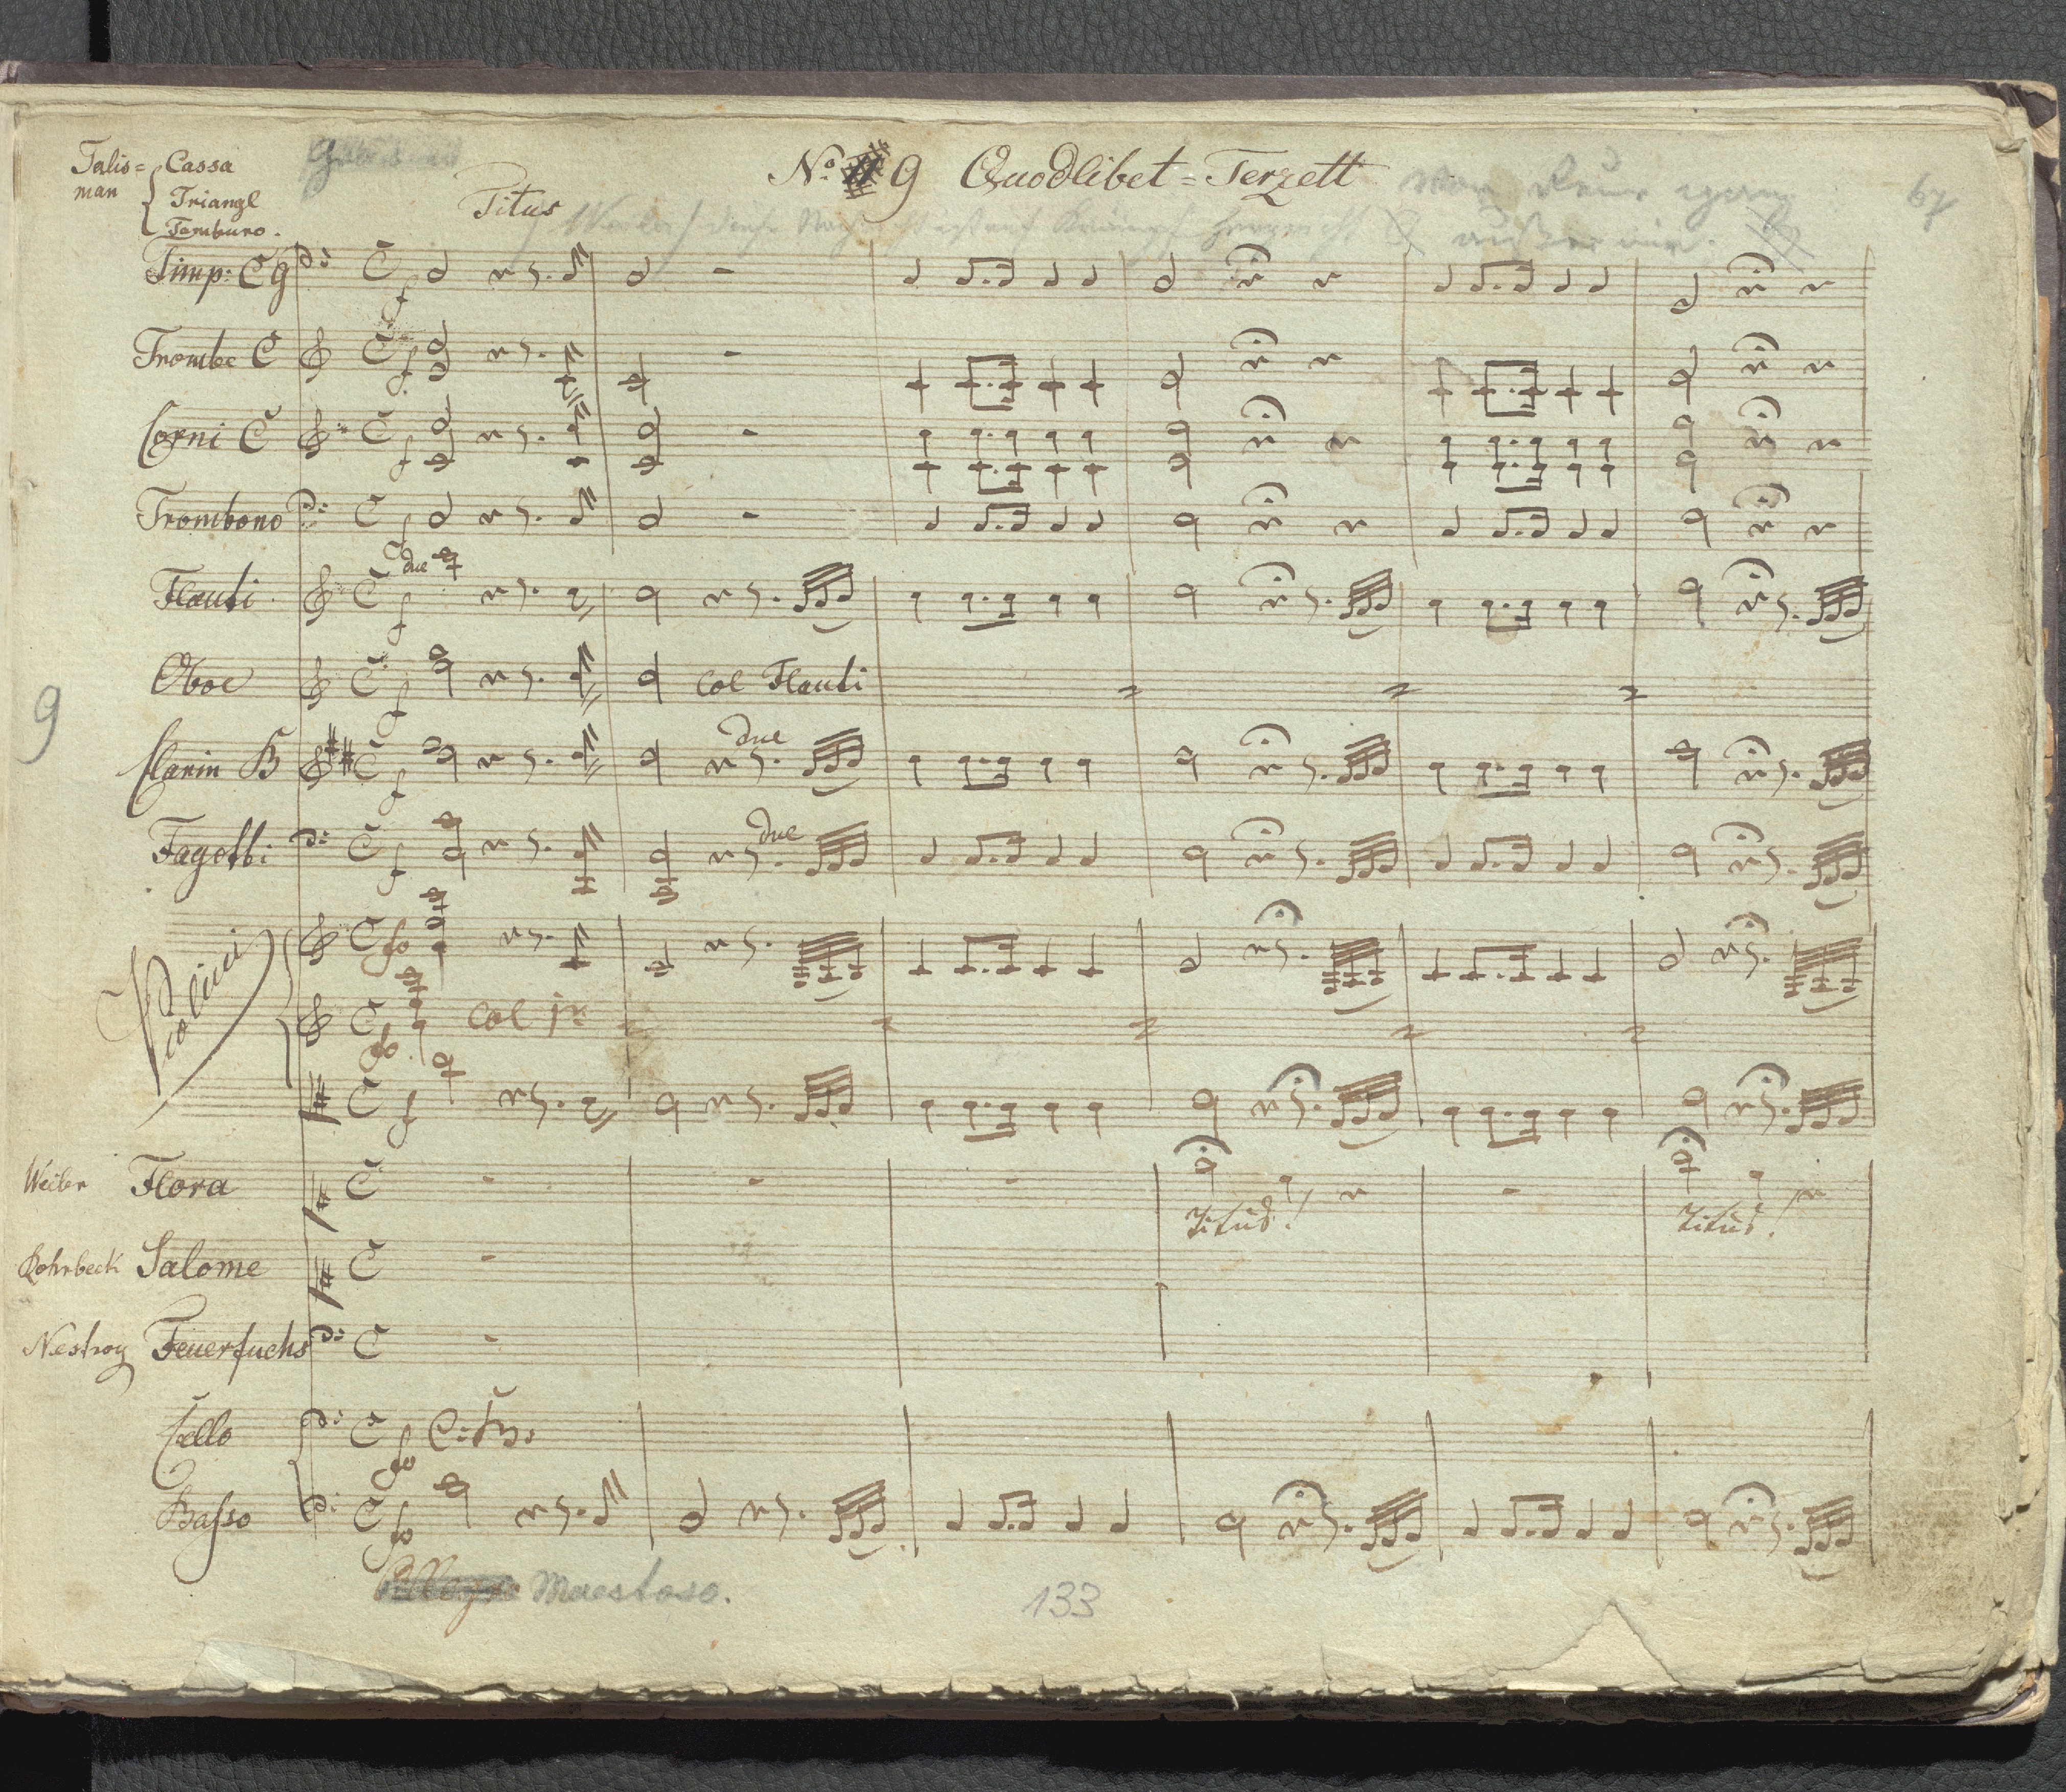 Talis= Cassa
man Triangl
Tamburo.
Titus
No. 9 Quodlibet=Terzett
67
außer mir.
Timp: C G
Trombe C
Corni C
Trombono
due
Flauti
Oboe col Flauti
9
Clarin B due
Fagotti due
Violini
fo
col 1mo
fo
Weiler Flora
Titus! Titus!
Rohrbeck Salome
Nestroy Feuerfuchs
Cello fo C: Bso
Basso fo
Allegro Maestoso.
133